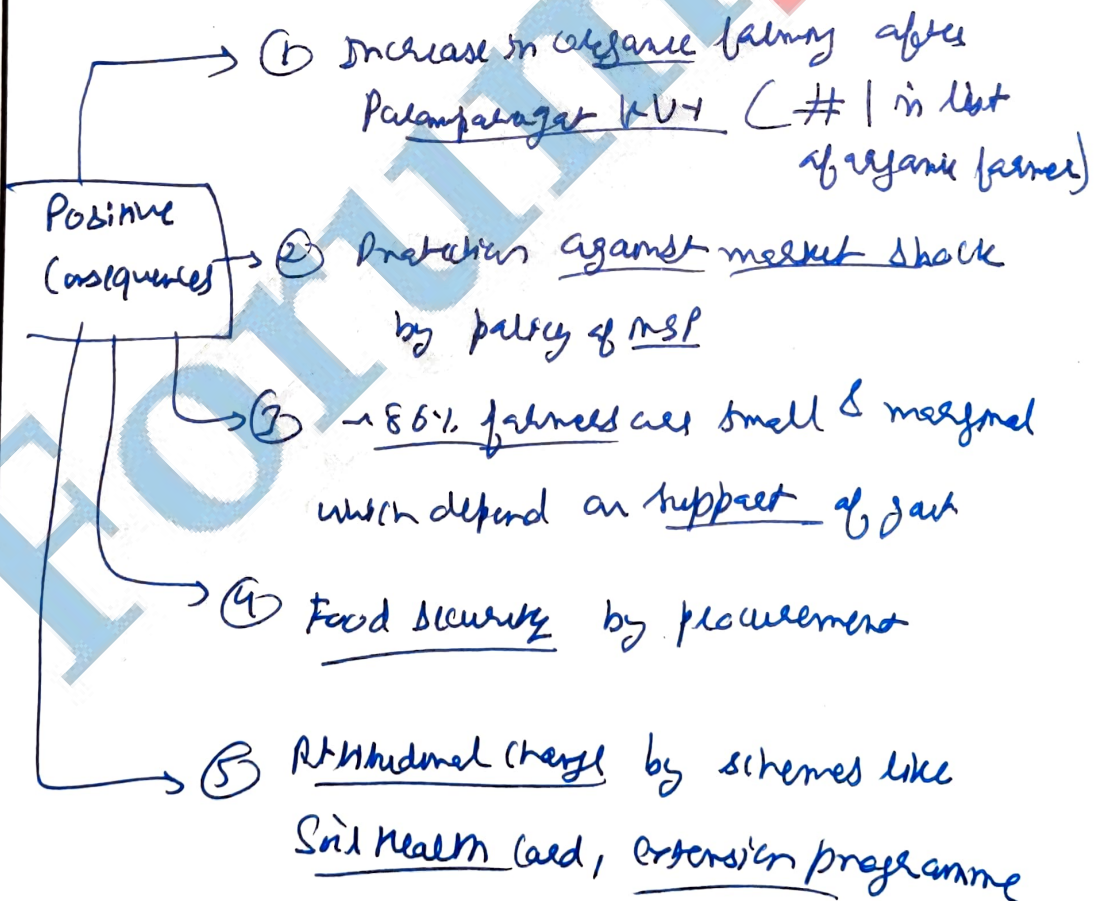 Positive
Consequences
① Increase in organic farming after
Paramparagat KVY ( #1 in list
of organic farmer)
② Protection against market shock
by policy of MSP
③ ~86% farmers are small & marginal
which depend on support of govt
④ Food security by procurement
⑤ Attitudinal change by schemes like
Soil Health Card, extension programme
Forum